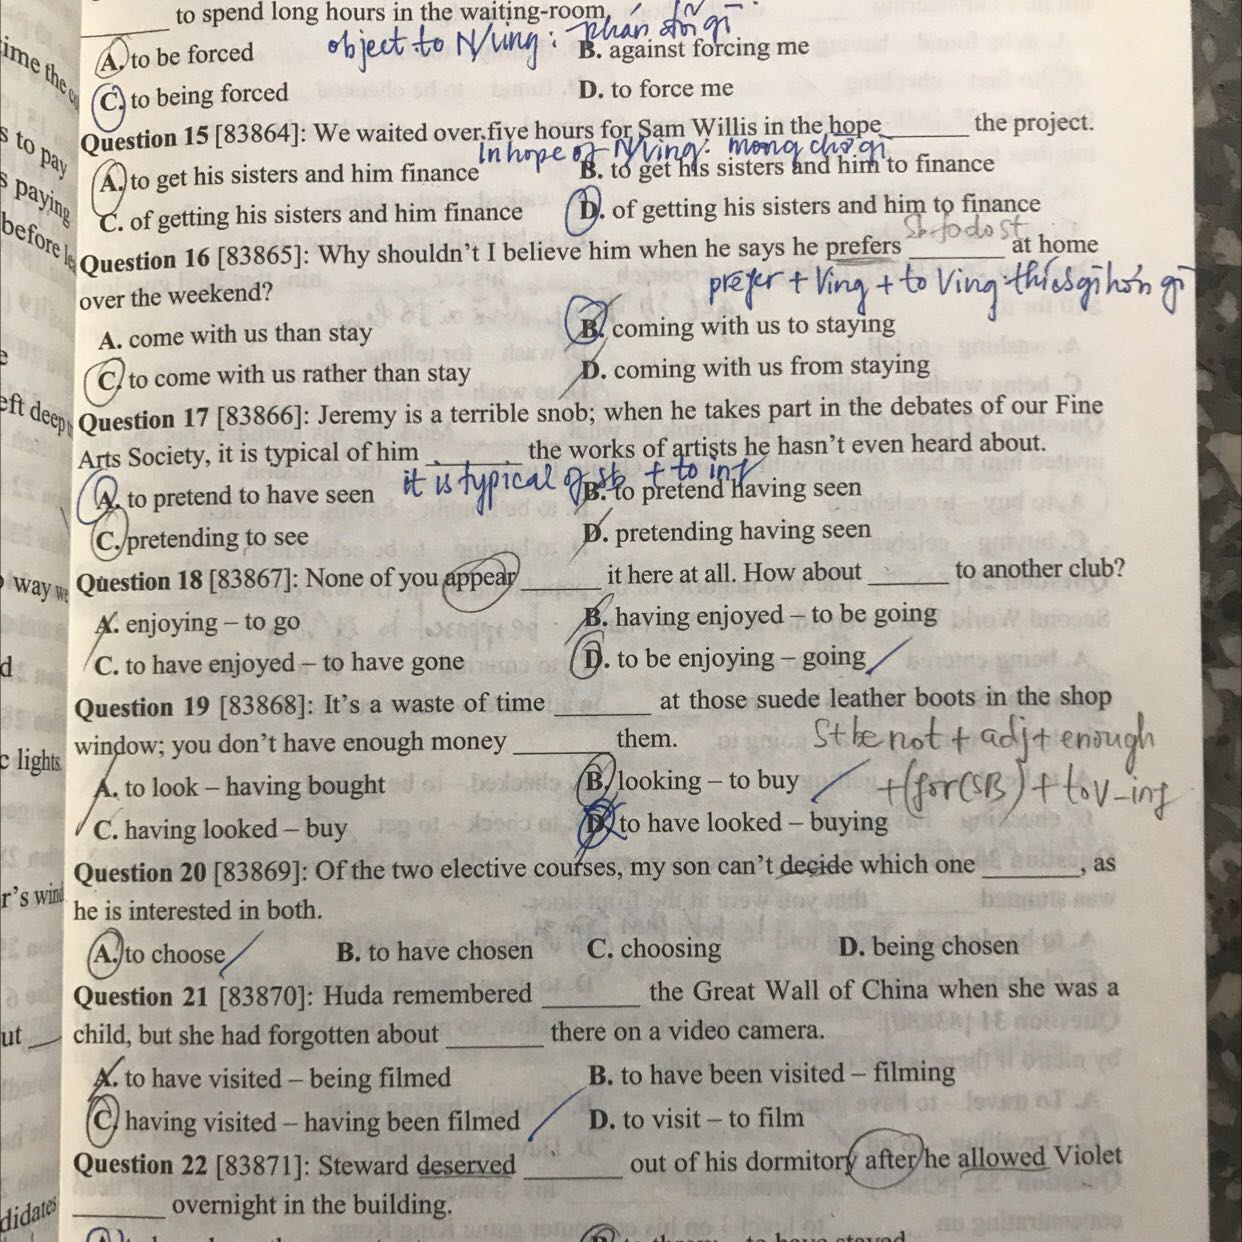 to spend long hours in the waiting-room
A. to be forced
object to N/Ving : phản đối gì
B. against forcing me
C. to being forced
D. to force me
Question 15 [83864]: We waited over five hours for Sam Willis in the hope ______ the project.
In hope of N/Ving: mong chờ gì
A. to get his sisters and him finance
B. to get his sisters and him to finance
C. of getting his sisters and him finance
D. of getting his sisters and him to finance
Sb to do st
Question 16 [83865]: Why shouldn't I believe him when he says he prefers ______ at home
over the weekend?
prefer + Ving + to Ving thích gì hơn gì
A. come with us than stay
B. coming with us to staying
C. to come with us rather than stay
D. coming with us from staying
Question 17 [83866]: Jeremy is a terrible snob; when he takes part in the debates of our Fine
Arts Society, it is typical of him ______ the works of artists he hasn't even heard about.
it is typical of sb + to inf
A. to pretend to have seen
B. to pretend having seen
C. pretending to see
D. pretending having seen
Question 18 [83867]: None of you appear ______ it here at all. How about ______ to another club?
A. enjoying – to go
B. having enjoyed – to be going
C. to have enjoyed – to have gone
D. to be enjoying – going
Question 19 [83868]: It's a waste of time ______ at those suede leather boots in the shop
window; you don't have enough money ______ them.
S+be not + adj + enough
+ (for(SB) + to V-inf
A. to look – having bought
B. looking – to buy
C. having looked – buy
D. to have looked – buying
Question 20 [83869]: Of the two elective courses, my son can't decide which one ______, as
he is interested in both.
A. to choose
B. to have chosen
C. choosing
D. being chosen
Question 21 [83870]: Huda remembered ______ the Great Wall of China when she was a
child, but she had forgotten about ______ there on a video camera.
A. to have visited – being filmed
B. to have been visited – filming
C. having visited – having been filmed
D. to visit – to film
Question 22 [83871]: Steward deserved ______ out of his dormitory after he allowed Violet
______ overnight in the building.
ime the
s to pay
s paying
before
eft deep
way
lights.
didates